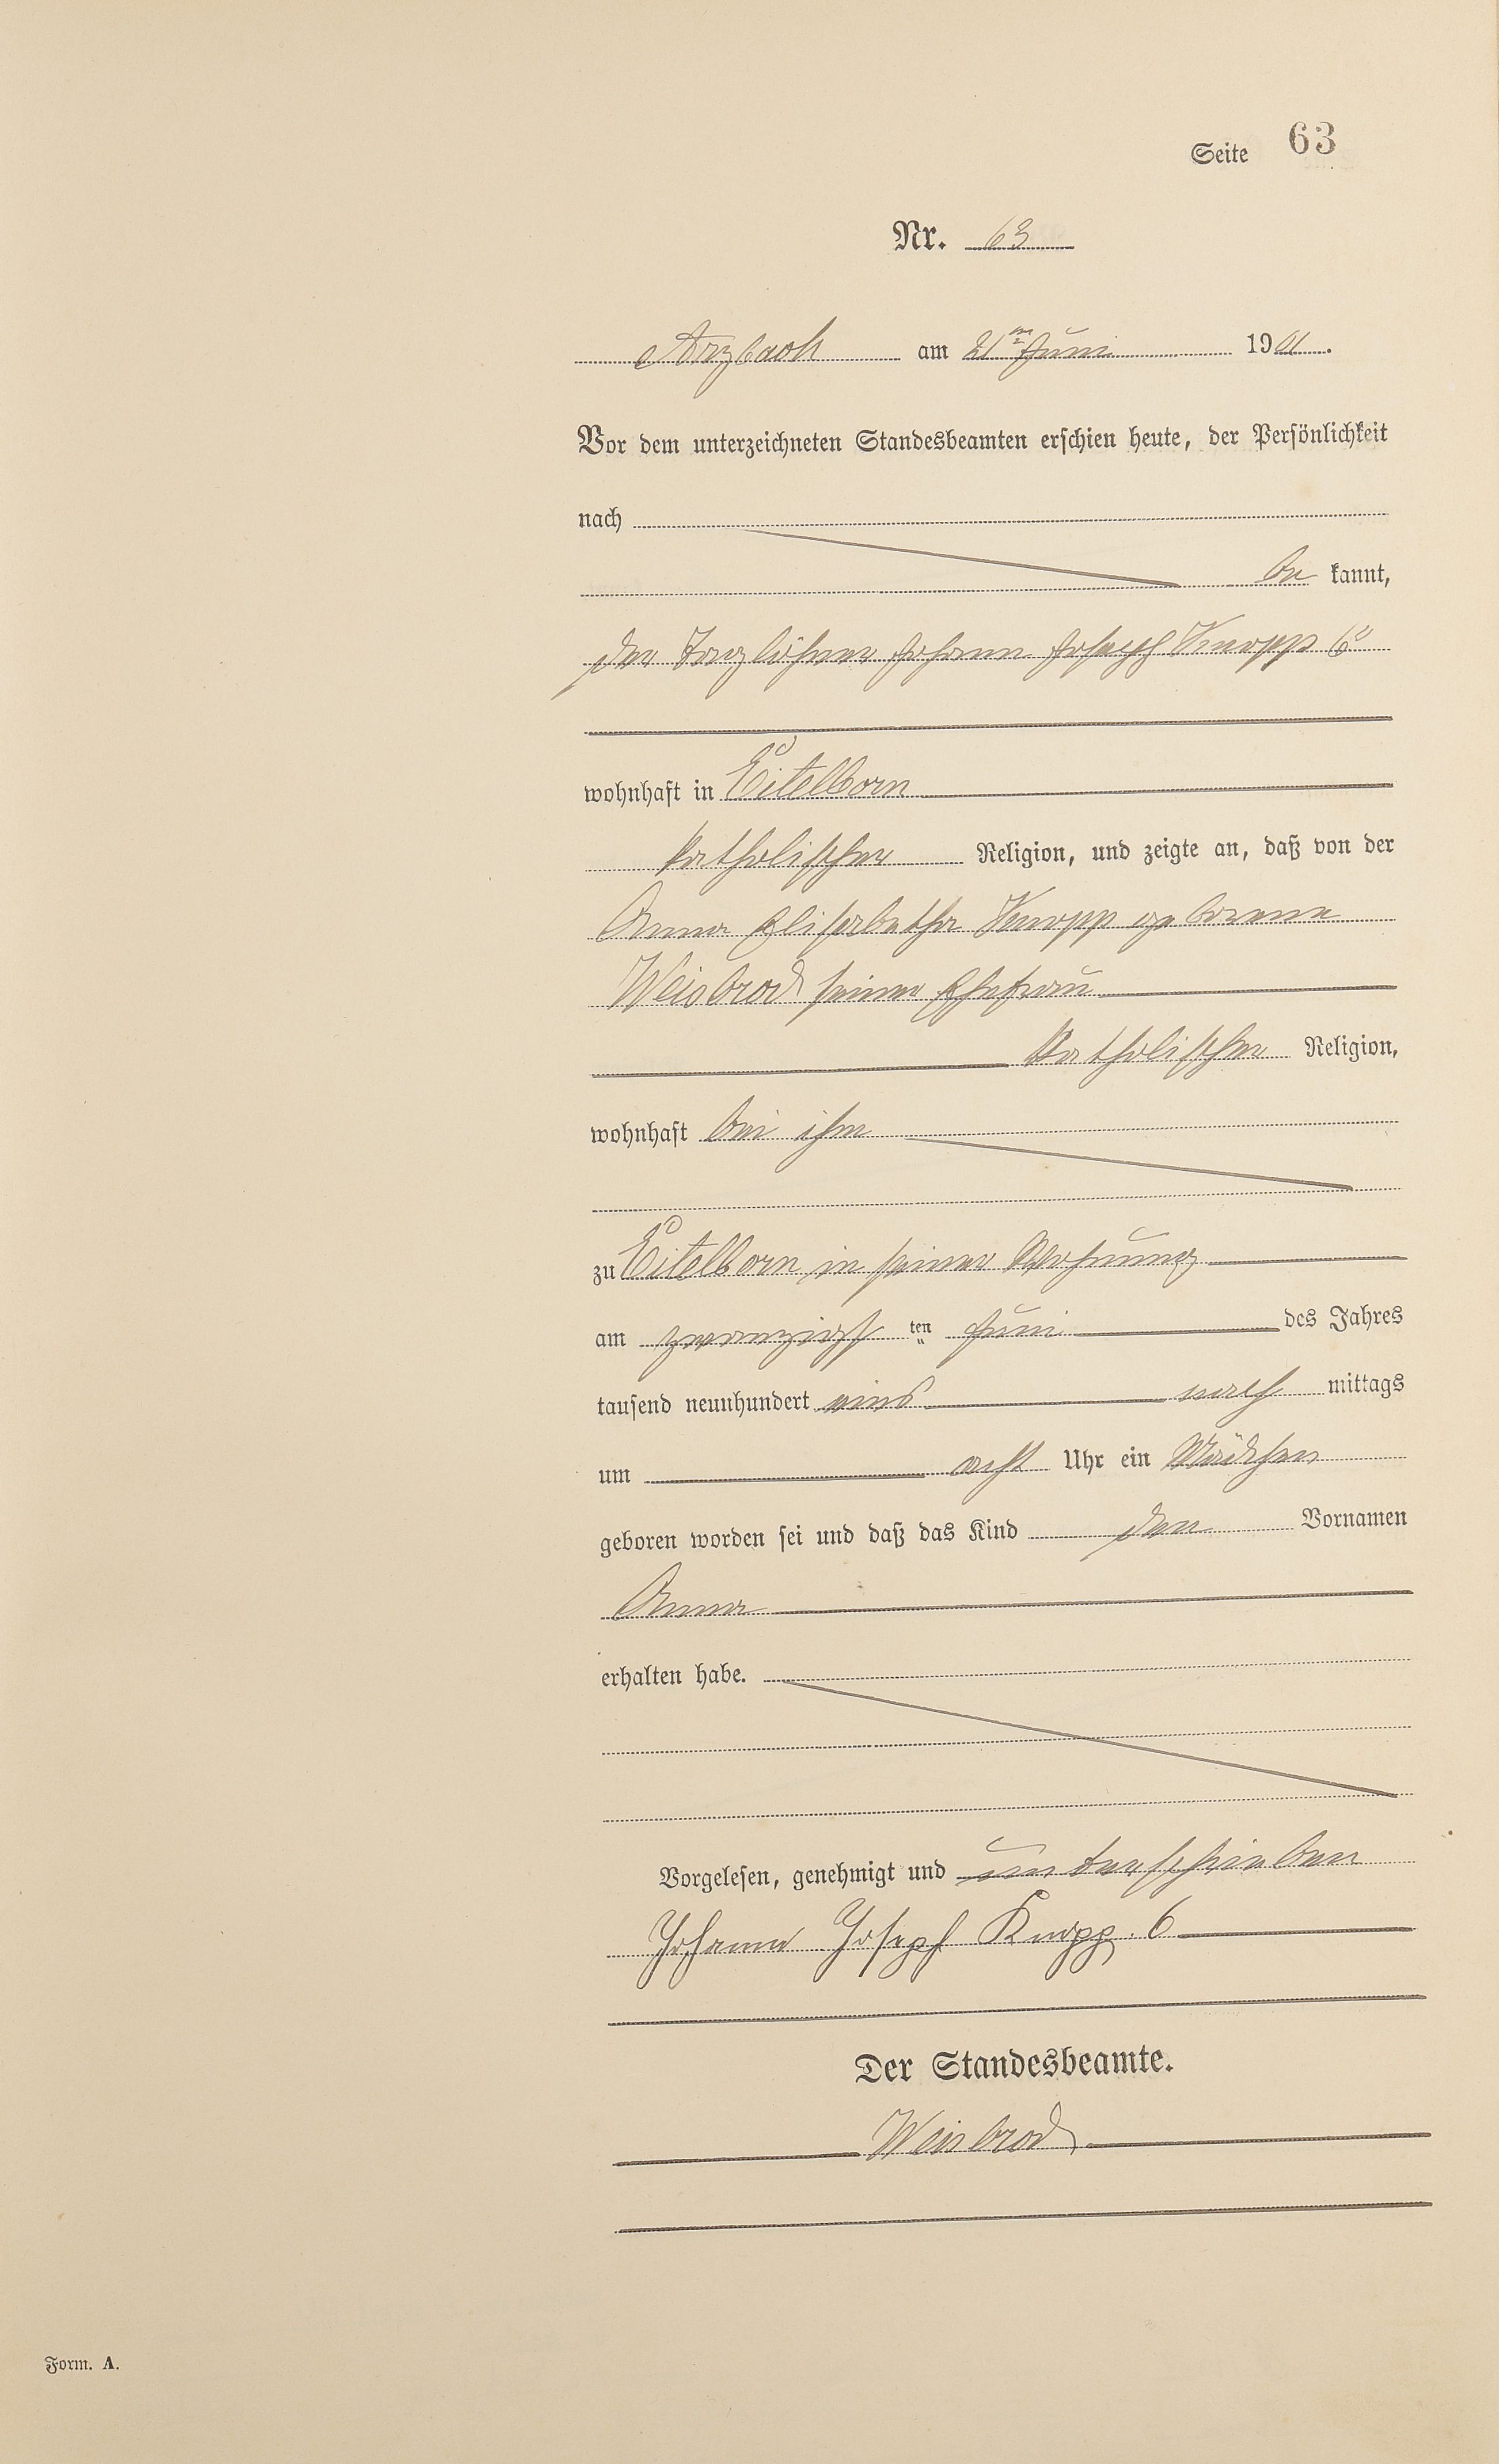 Seite 63
Nr. 63
Arzbach am 21ten Juni 1901.
Vor dem unterzeichneten Standesbeamten erschien heute, der Persönlichkeit
nach
be kannt,
der Taglöhner Johann Joseph Knopp 6r
wohnhaft in Eitelborn
katholischer Religion, und zeigte an, daß von der
Anna Elisabetha Knopp geborene
Weisbrod seiner Ehefrau
katholischer Religion,
wohnhaft bei ihm
zu Eitelborn in seiner Wohnung
am zwanzigst ten Juni des Jahres
tausend neunhundert eins nach mittags
um acht Uhr ein Mädchen
geboren worden sei und daß das Kind den Vornamen
Anna
erhalten habe.
Vorgelesen, genehmigt und unterschrieben
Johann Joseph Knopp. 6
Der Standesbeamte.
Weisbrod
Form. A.